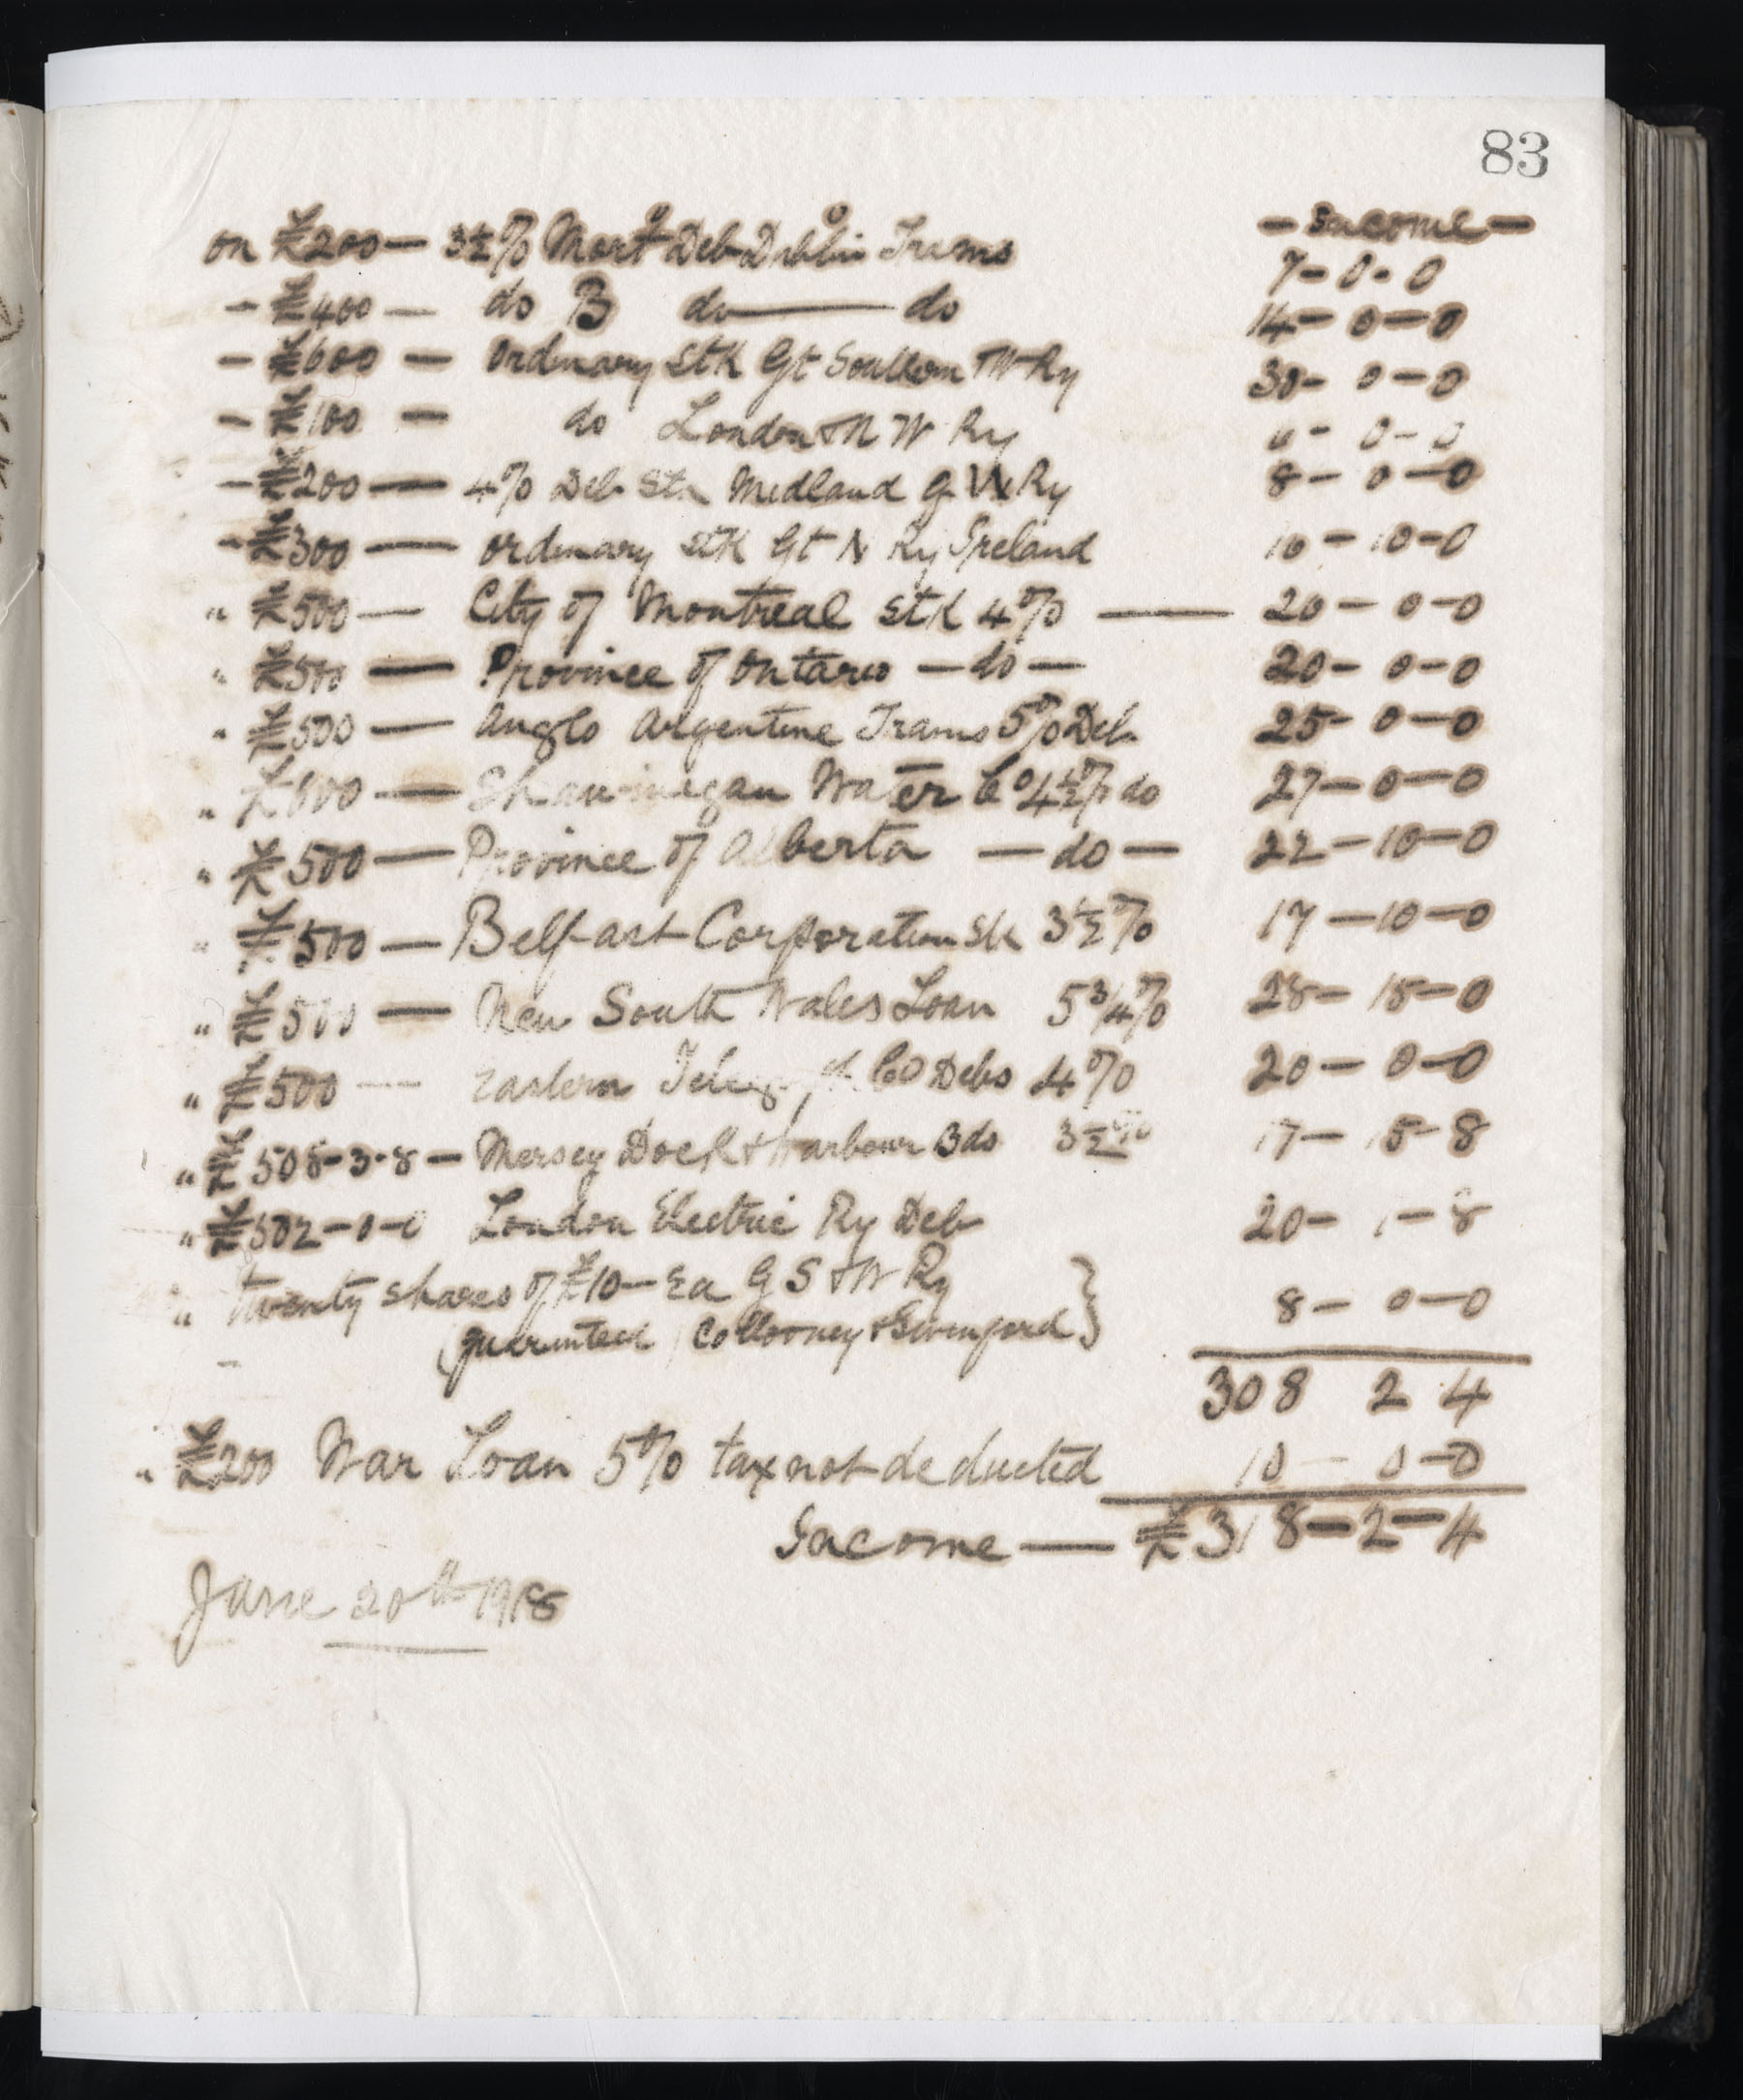 83
— Income —
on £200 — 3½% Mort Deb Dublin Trams 7 - 0 - 0
— £400 — do B do —— do 14 - 0 - 0
— £600 — Ordinary Stk Gt Southern & W Ry 30 - 0 - 0
— £100 — do London & N W Ry 6 - 0 - 0
— £200 — 4% Deb Stk Midland G W Ry 8 - 0 - 0
— £300 — Ordinary Stk Gt N Ry Ireland 16 - 10 - 0
" £500 — City of Montreal Stk 4% —— 20 - 0 - 0
" £500 — Province of Ontario — do — 20 - 0 - 0
" £500 — Anglo Argentine Trams 5% Deb 25 - 0 - 0
" £600 — Shawinegan Water Co 4½% do 27 - 0 - 0
" £500 — Province of Alberta — do — 22 - 10 - 0
" £500 — Belfast Corporation Stk 3½% 17 - 10 - 0
" £500 — New South Wales Loan 5¾% 28 - 15 - 0
" £500 — Eastern Telegraph Co Debs 4% 20 - 0 - 0
" £508 - 3 - 8 — Mersey Dock & Harbour Bds 3½% 17 - 15 - 8
" £502 - 0 - 0 London Electric Ry Deb 20 - 1 - 8
" Twenty shares of £10 — Ea G S & W Ry
(guaranteed Collooney & Swinford } 8 - 0 - 0
308 2 4
" £200 War Loan 5% tax not deducted 10 - 0 - 0
Income — £318 - 2 - 4
June 20th 1918